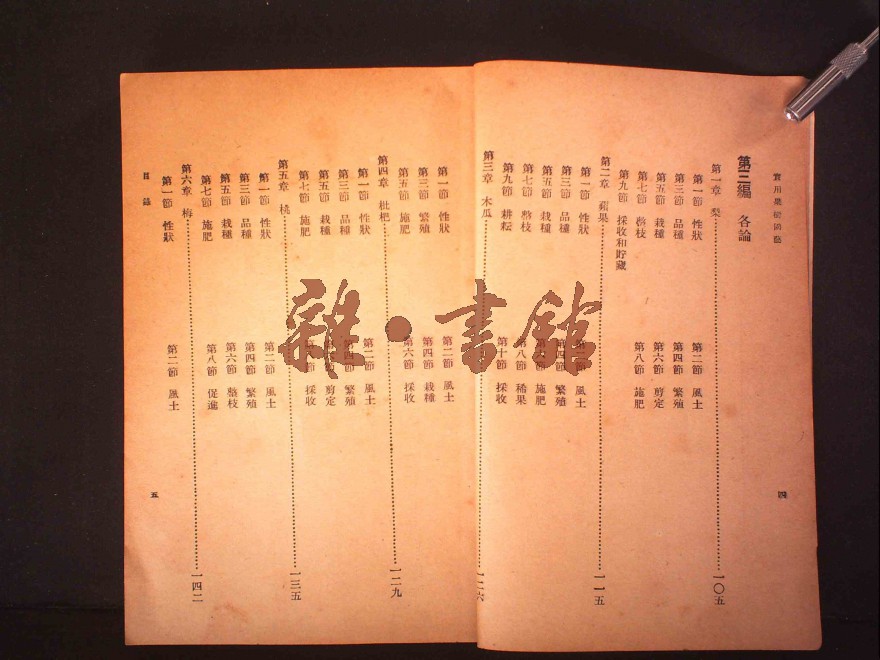 實用果樹園藝 四
第三編 各論
第一章 梨……一〇五
第一節 性狀 第二節 風土
第三節 品種 第四節 繁殖
第五節 栽種 第六節 剪定
第七節 整枝 第八節 施肥
第九節 採收和貯藏
第二章 蘋果……一一五
第一節 性狀 第二節 風土
第三節 品種 第四節 繁殖
第五節 栽種 第六節 施肥
第七節 整枝 第八節 稀果
第九節 耕耘 第十節 採收
第三章 木瓜……一二六
第一節 性狀 第二節 風土
第三節 繁殖 第四節 栽種
第五節 施肥 第六節 採收
第四章 枇杷……一二九
第一節 性狀 第二節 風土
第三節 品種 第四節 繁殖
第五節 栽種 第六節 剪定
第七節 施肥 第八節 採收
第五章 桃……一三五
第一節 性狀 第二節 風土
第三節 品種 第四節 繁殖
第五節 栽種 第六節 整枝
第七節 施肥 第八節 促進
第六章 梅……一四二
第一節 性狀 第二節 風土
目錄 五
雜·書館